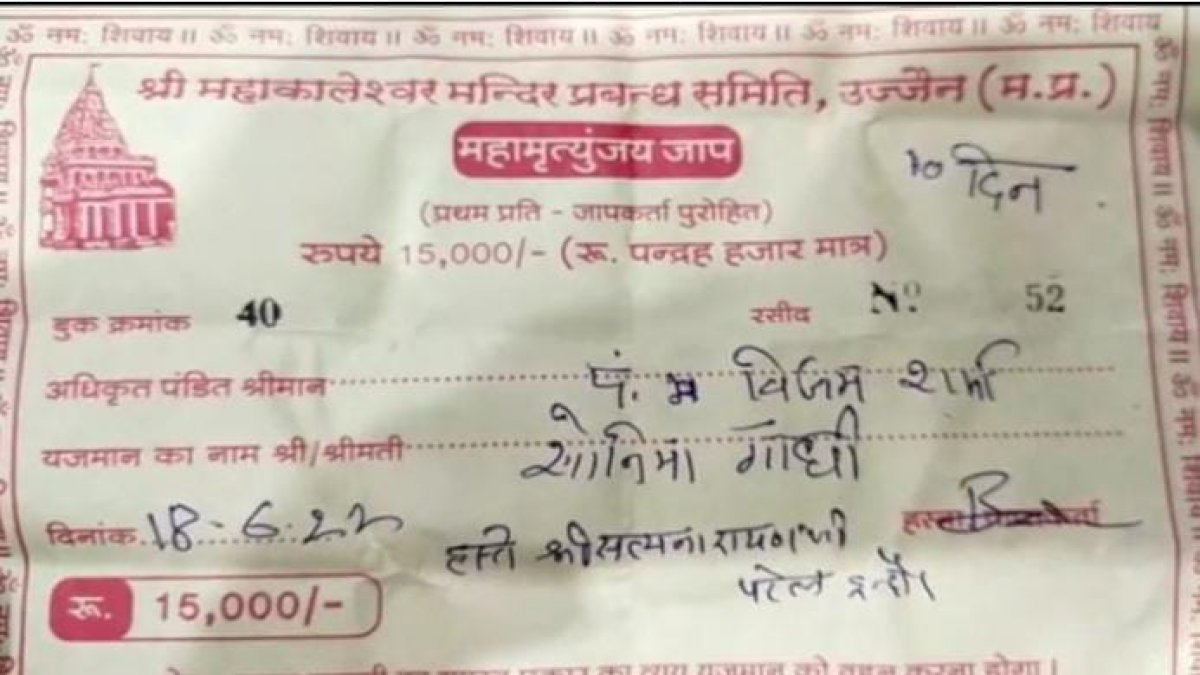 ॐ नम: शिवाय ॥ ॐ नम: शिवाय ॥ ॐ नम: शिवाय ॥ ॐ नम: शिवाय ॥ ॐ नम: शिवाय ॥ ॐ नम: शिवाय
श्री महाकालेश्वर मन्दिर प्रबन्ध समिति, उज्जैन (म.प्र.)
महामृत्युंजय जाप
10 दिन
(प्रथम प्रति - जापकर्ता पुरोहित)
रुपये 15,000/- (रू. पन्द्रह हजार मात्र)
बुक क्रमांक 40 रसीद No 52
अधिकृत पंडित श्रीमान पं. विजय शर्मा
यजमान का नाम श्री/श्रीमती सोनिया गांधी
दिनांक 18-6-22
हस्ते श्री सत्यनारायण जी
पटेल इन्दौर
रू. 15,000/-
का व्यय यजमान को वहन करना होगा।